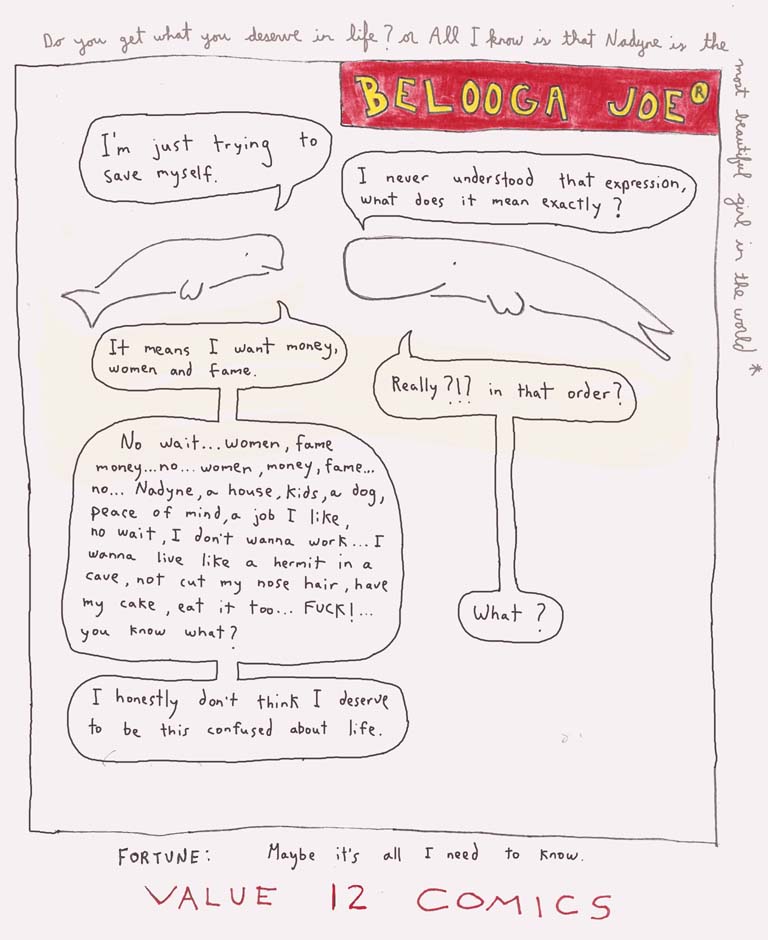 Do you get what you deserve in life? or All I know is that Nadyne is the
most beautiful girl in the world *
BELOOGA JOE®
I'm just trying to
save myself.
I never understood that expression,
what does it mean exactly?
It means I want money,
women and fame.
Really?!? in that order?
No wait...women, fame
money...no...women, money, fame...
no... Nadyne, a house, kids, a dog,
peace of mind, a job I like,
no wait, I don't wanna work...I
wanna live like a hermit in a
cave, not cut my nose hair, have
my cake, eat it too... FUCK!...
you know what?
What?
I honestly don't think I deserve
to be this confused about life.
FORTUNE: Maybe it's all I need to know.
VALUE 12 COMICS